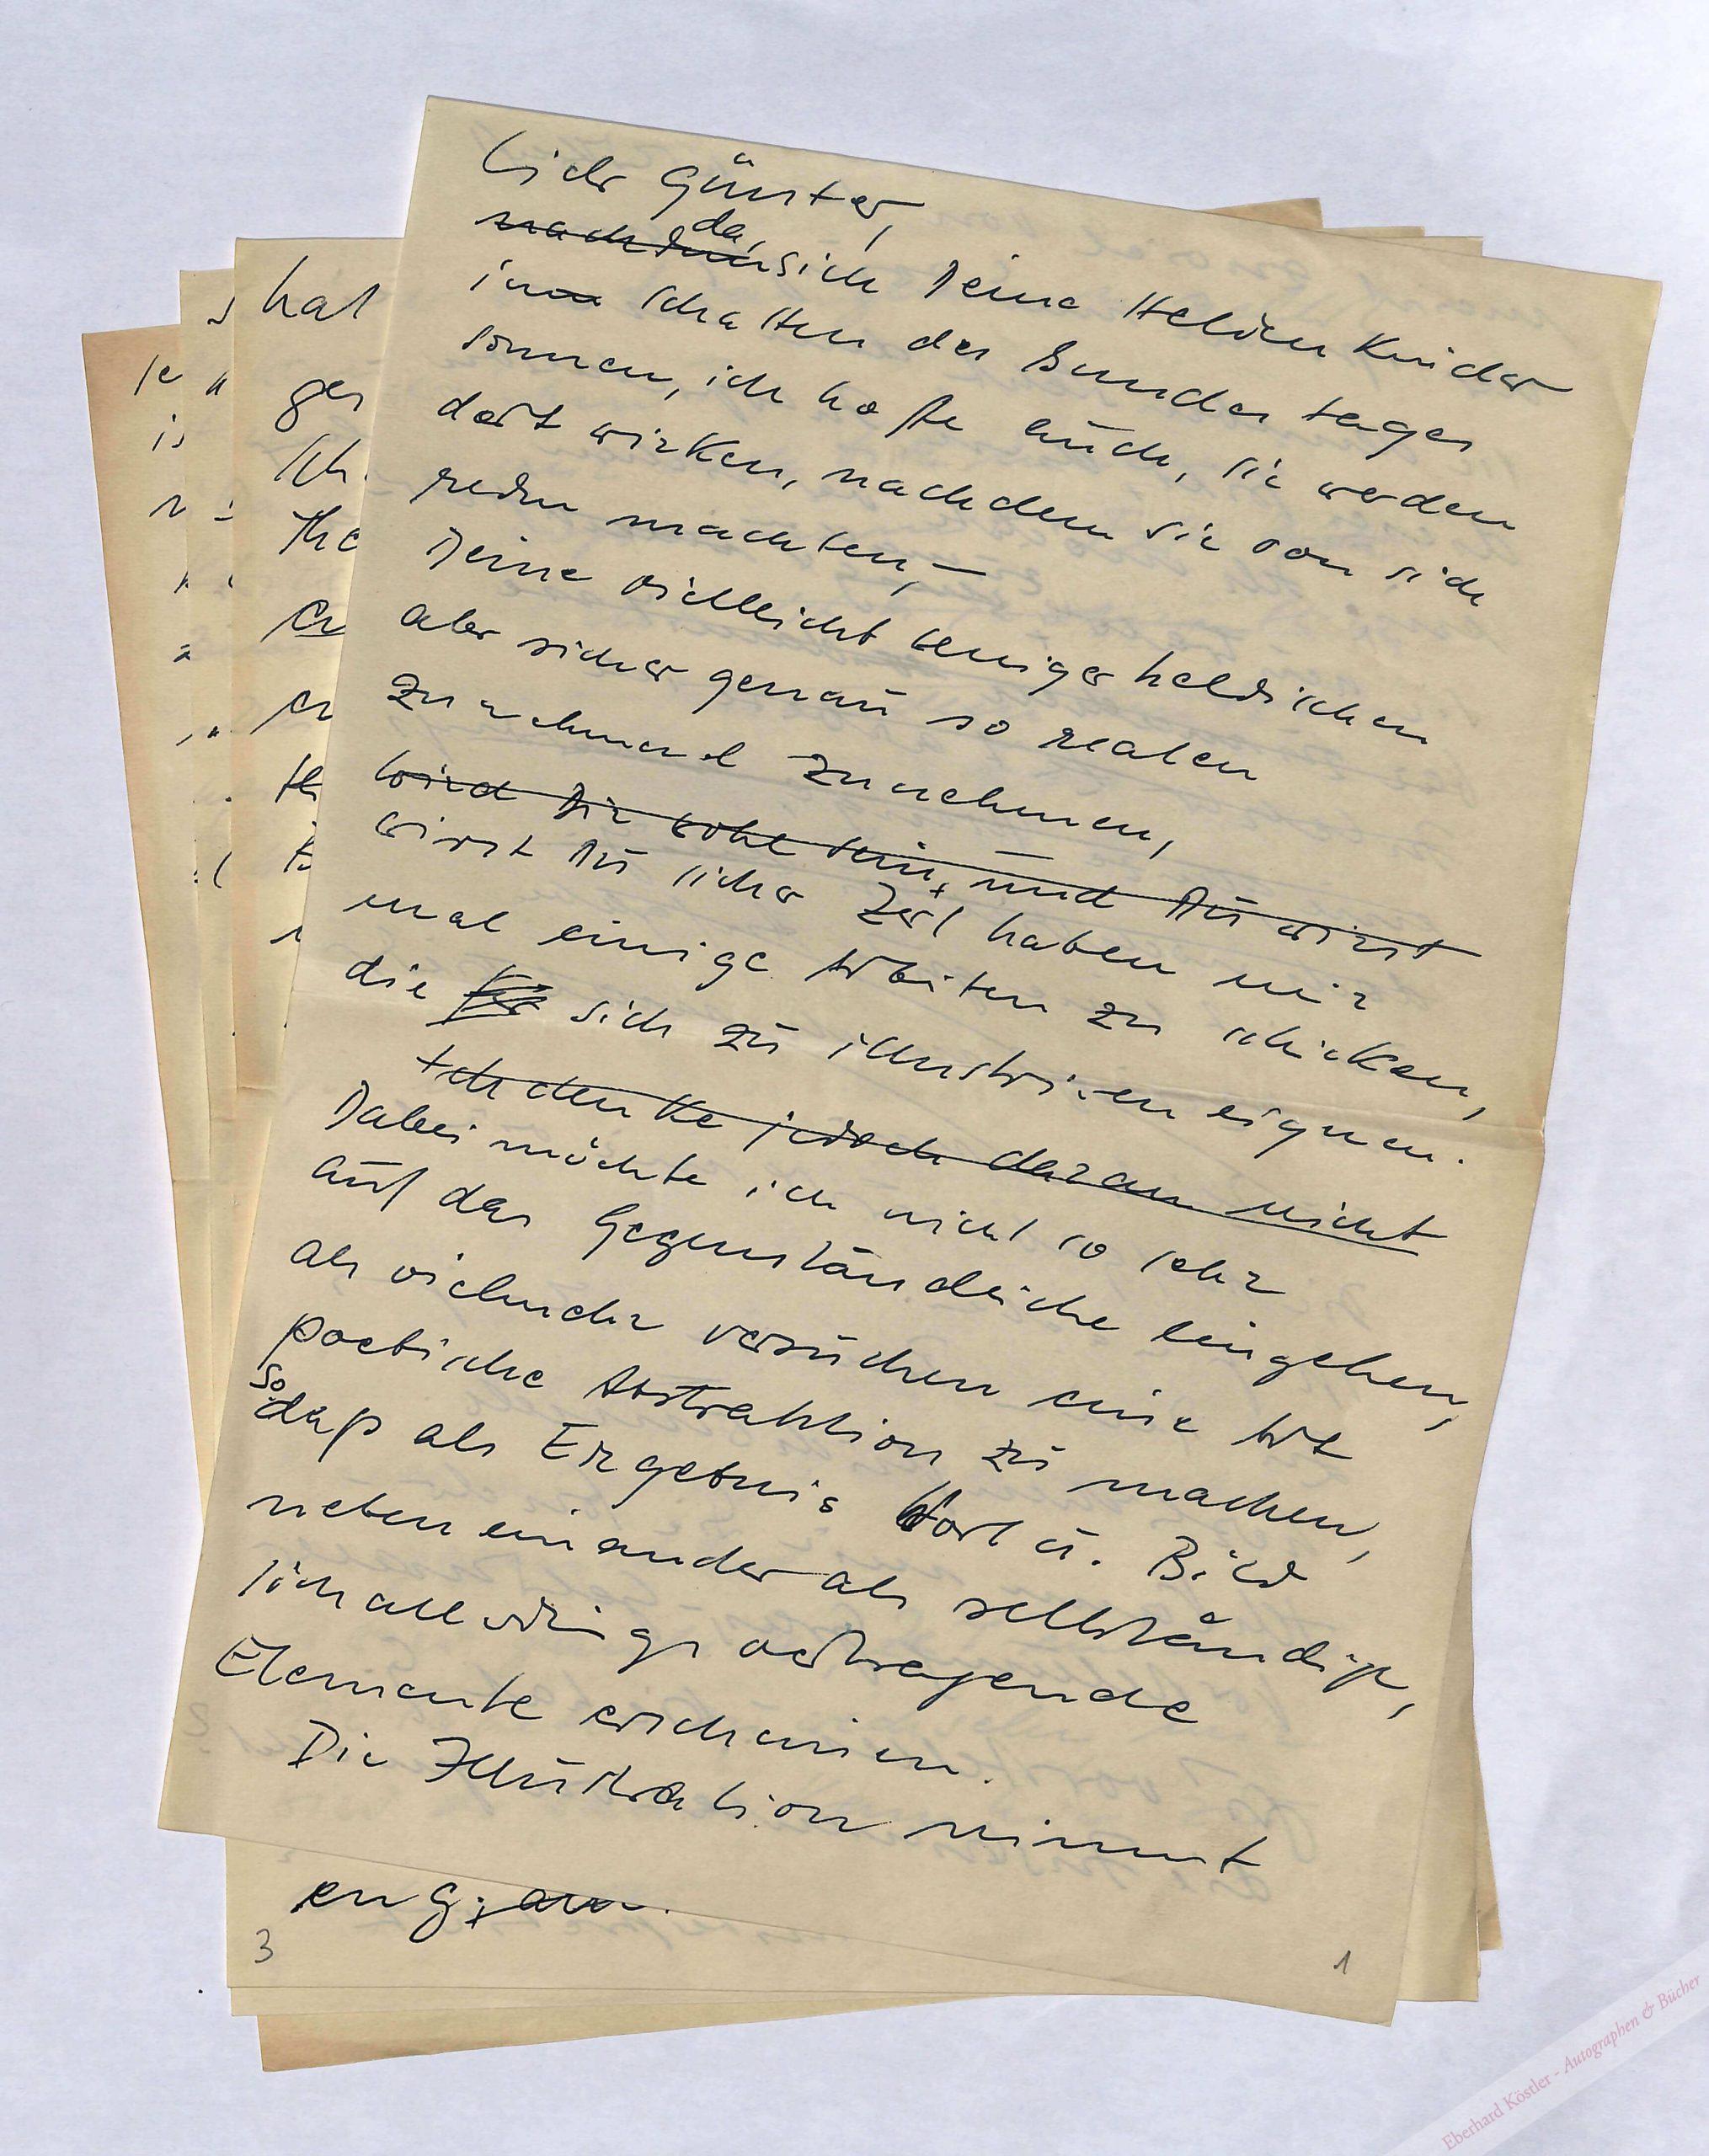 Lieber Günter,
nachdem da, sich Deine Heldenkinder
im Schatten des Bundestages
sonnen, ich hoffe auch, sie werden
dort wirken, nachdem sie von sich
reden machten, –
Deine vielleicht weniger heldischen
aber sicher genau so realen
zunehmend zunehmen,
wird Dir wohl sein, und Du wirst
wirst Du sicher Zeit haben mir
mal einige Arbeiten zu schicken,
die sich zu illustrieren eignen.
Ich denke jedoch daran nicht
Dabei möchte ich nicht so sehr
auf das Gegenständliche eingehen,
als vielmehr versuchen eine Art
poetische Abstraktion zu machen,
so daß als Ergebnis Wort u. Bild
nebeneinander als selbständige,
sich allerdings vertragende
Elemente erscheinen.
Die Illustration nimmt
hat
ges
Sch
The
en
th
eng
3
1
Eberhard Köstler - Autographen & Bücher